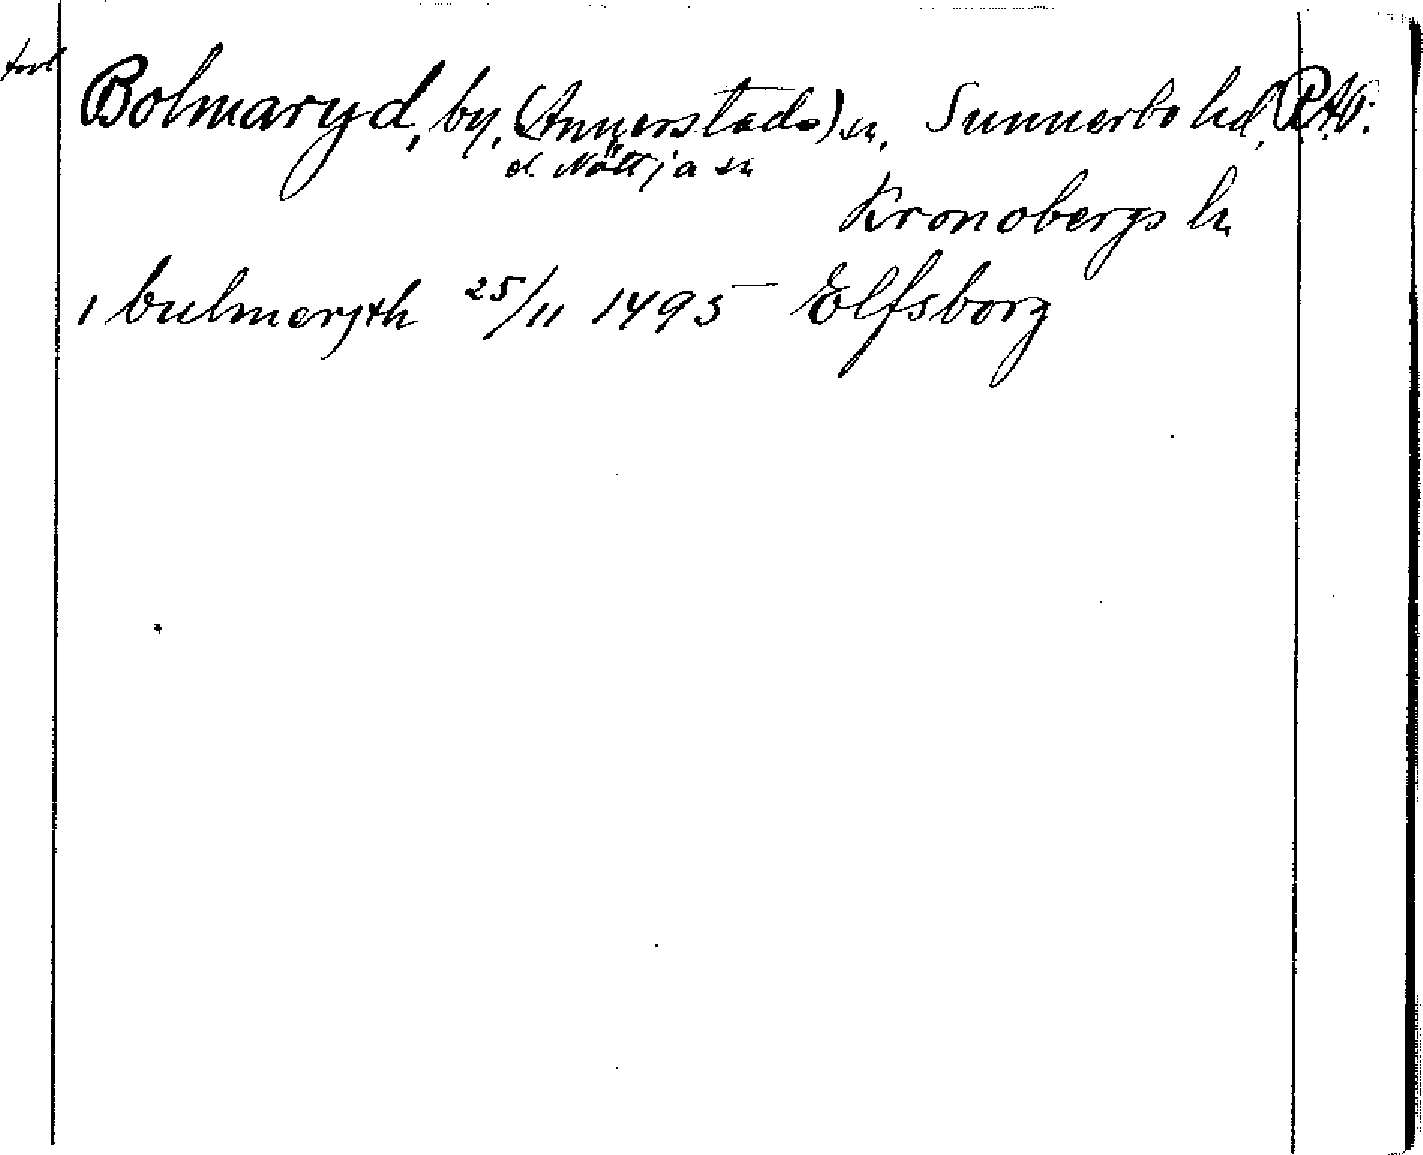 Bolmaryd, by, (Annerstads) sn, Sunnerbo hd, RAP.
el. Nöttja sn
Kronobergs ln
i bulmeryth 25/11 1495 Elfsborg